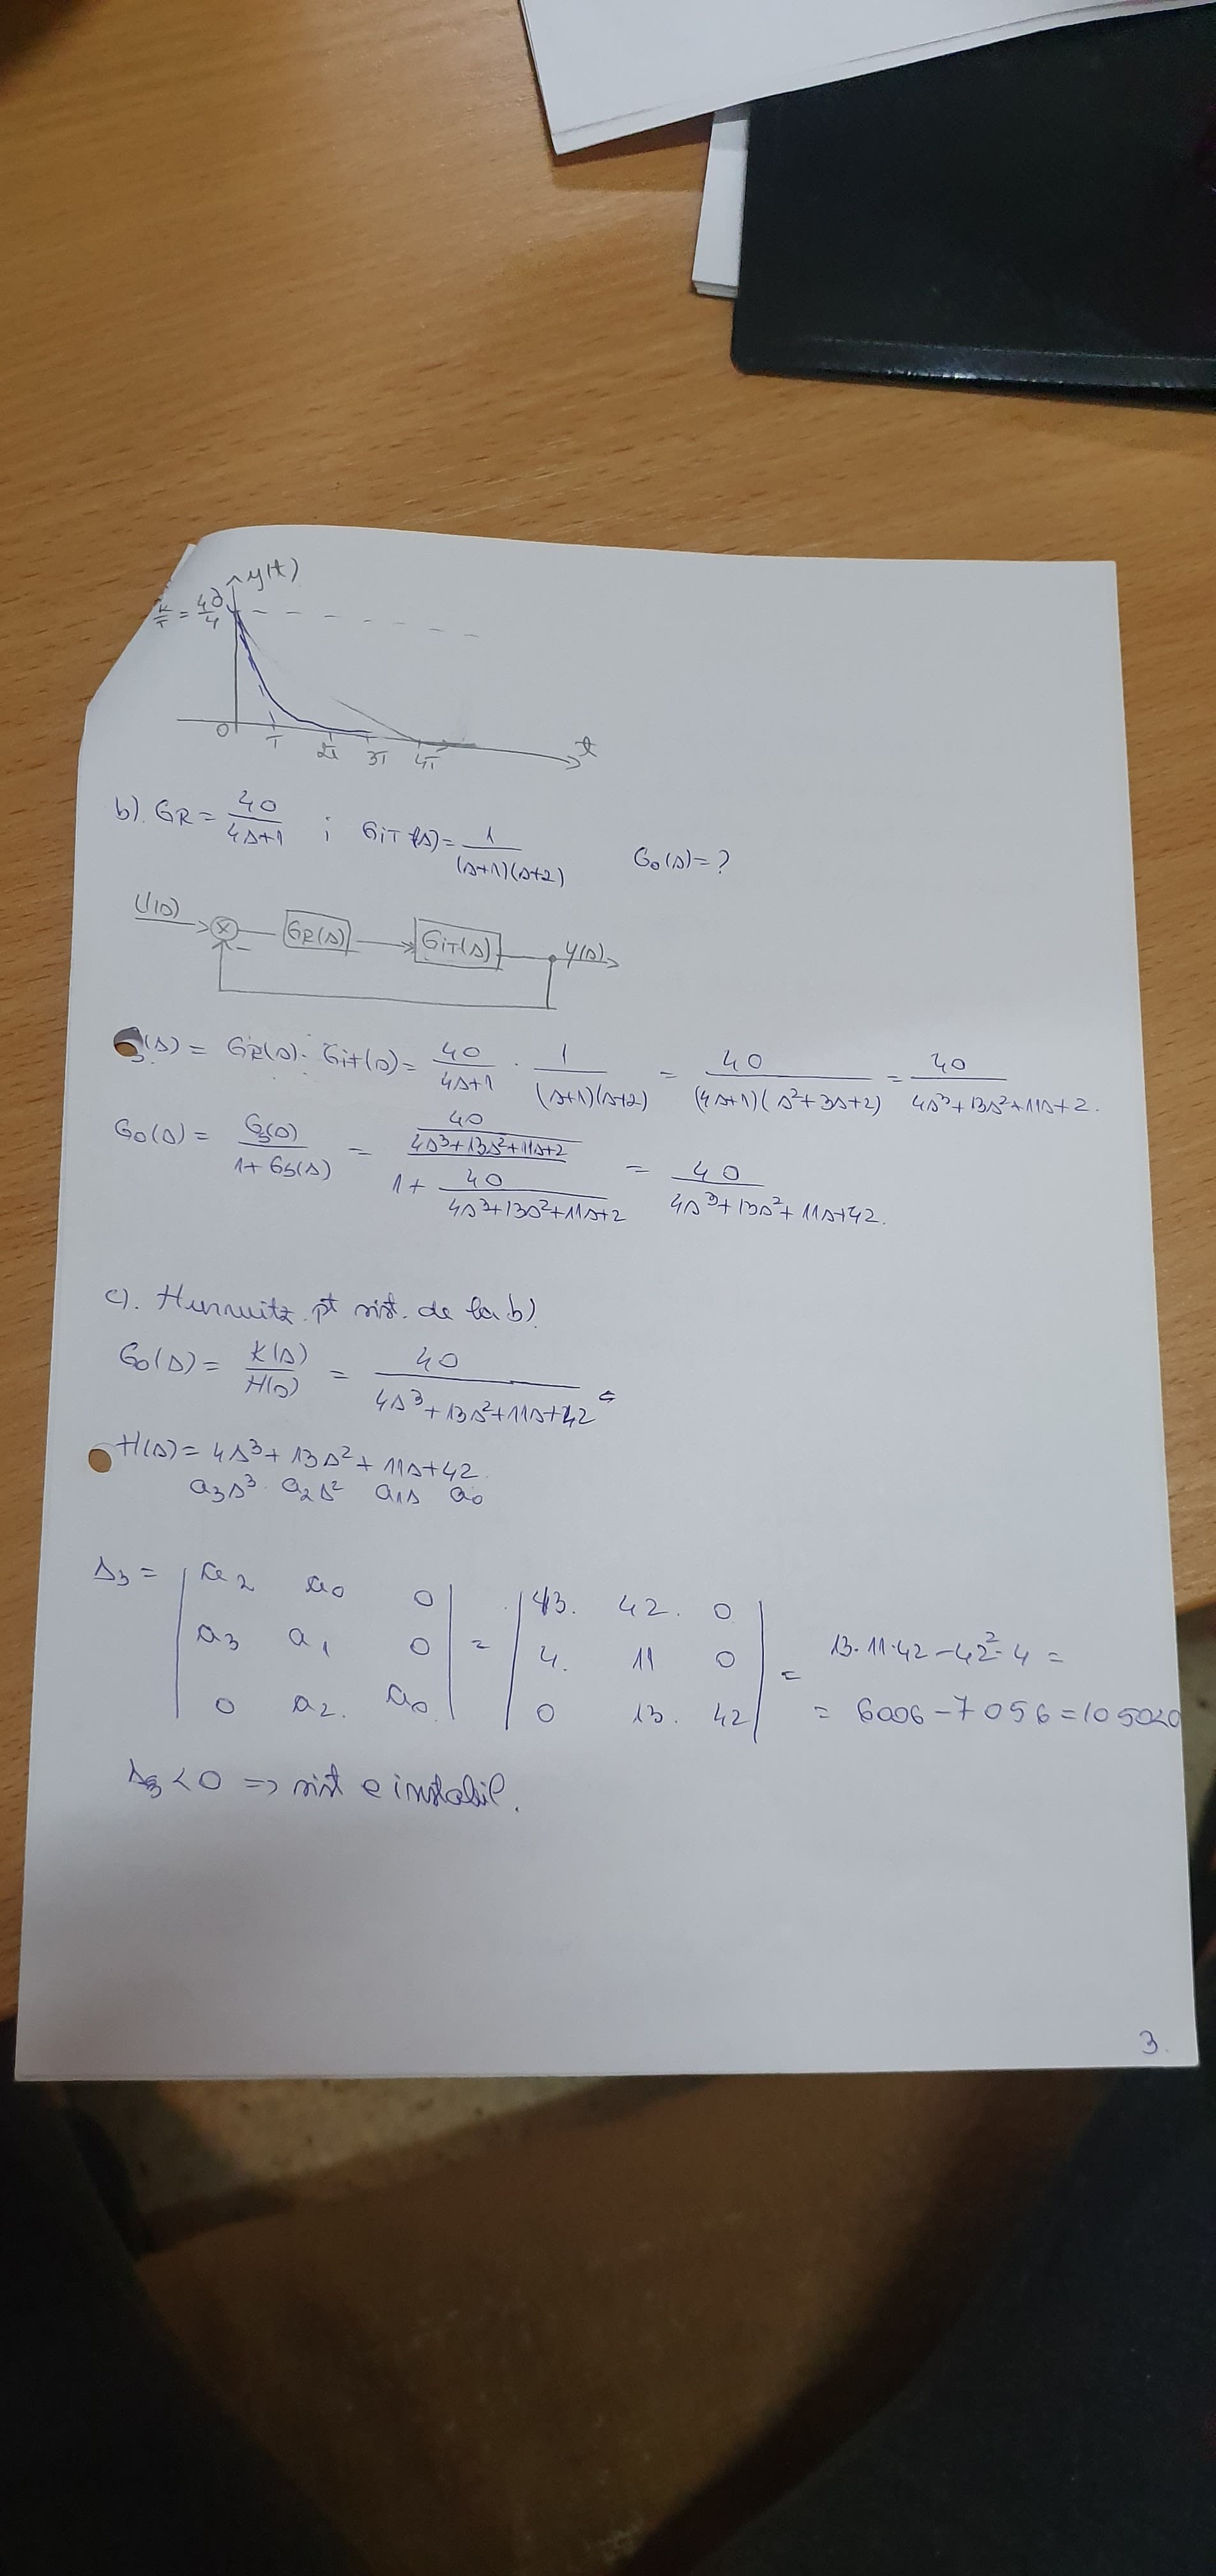 y(t)
K/T = 40/4
0 T 2T 3T 4T t
b). GR = 40/(4s+1) ; GiT(s) = 1/((s+1)(s+2)) G0(s) = ?
U(s) GR(s) GiT(s) Y(s)
(s) = GR(s) · GiT(s) = 40/(4s+1) · 1/((s+1)(s+2)) = 40/((4s+1)(s²+3s+2)) = 40/(4s³+13s²+11s+2).
G0(s) = Gs(s)/(1+Gs(s)) = (40/(4s³+13s²+11s+2))/(1+40/(4s³+13s²+11s+2)) = 40/(4s³+13s²+11s+42).
c). Hurwitz pt sist. de la b)
G0(s) = K(s)/H(s) = 40/(4s³+13s²+11s+42) =
H(s) = 4s³+13s²+11s+42.
a3s³ a2s² a1s a0
Δ3 = | a2 a0 0 | = | 13. 42. 0 | = 13·11·42-42²·4 =
| a3 a1 0 | | 4. 11 0 |
| 0 a2. a0 | | 0 13. 42 | = 6006-7056=105020
Δ3 < 0 => sist e instabil.
3.